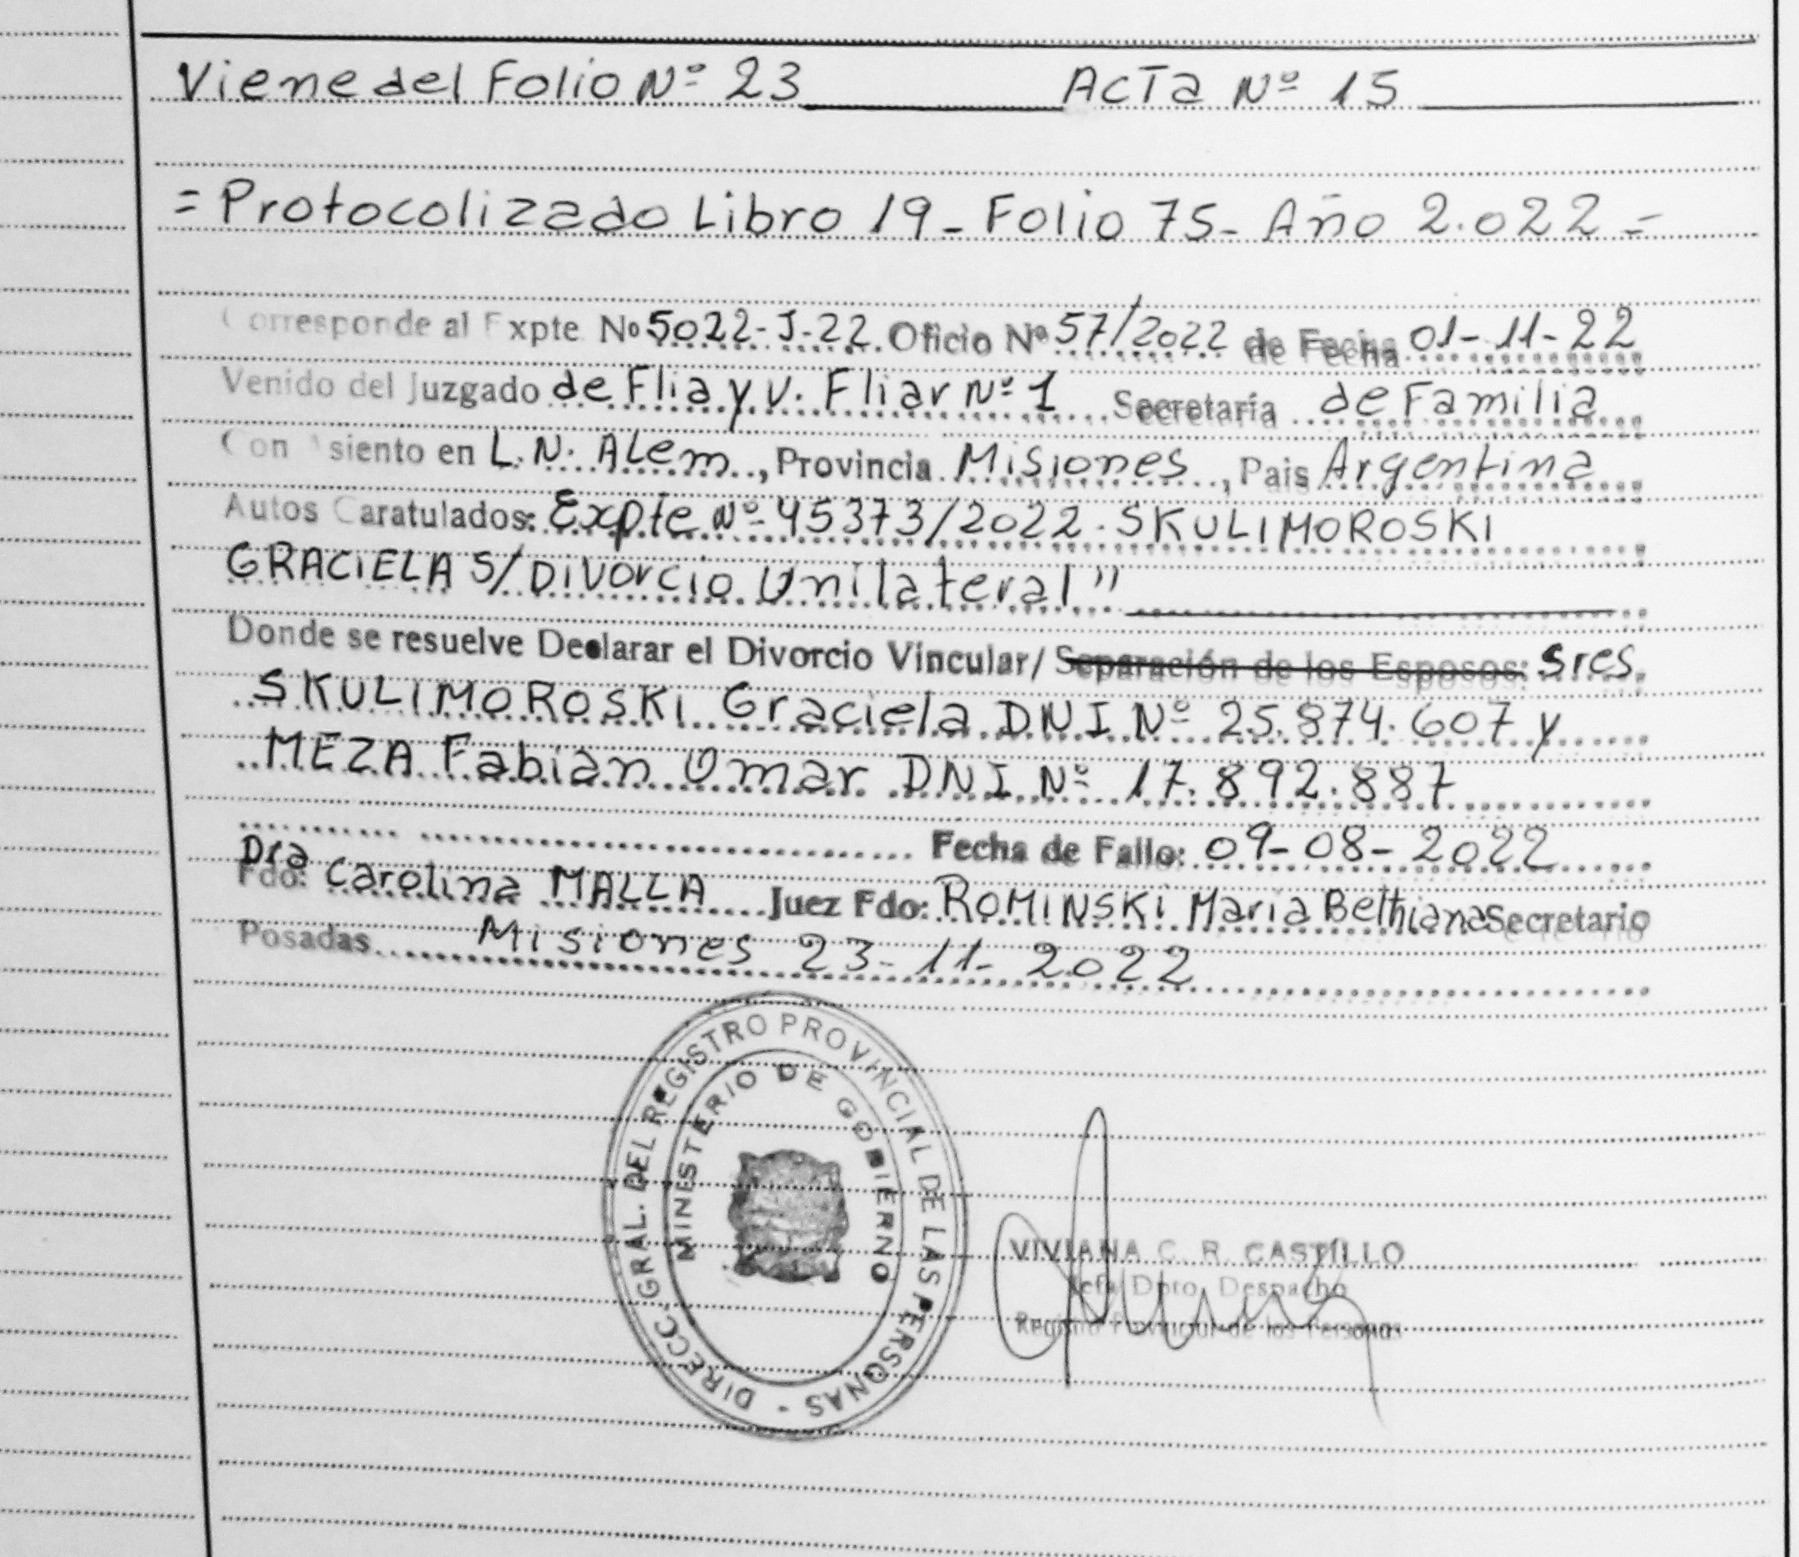 Viene del Folio Nº 23 Acta Nº 15
= Protocolizado Libro 19 - Folio 75 - Año 2.022 =
Corresponde al Expte Nº 5022-J-22. Oficio Nº 57/2022 de Fecha 01-11-22
Venido del Juzgado de Flia y V. Fliar Nº 1 Secretaría de Familia
Con Asiento en L.N. Alem, Provincia Misiones, Pais Argentina
Autos Caratulados: Expte Nº 45373/2022. SKULIMOROSKI
GRACIELA S/ Divorcio Unilateral"
Donde se resuelve Declarar el Divorcio Vincular/ Separación de los Esposos: Sres.
SKULIMOROSKI Graciela DNI Nº 25.874.607 y
MEZA Fabian Omar DNI Nº 17.892.887
Fecha de Fallo: 09-08-2022
Dra
Fdo: Carolina MALLA Juez Fdo: ROMINSKI Maria Belthiana Secretario
Posadas Misiones 23-11-2022
DIRECC. GRAL. DEL REGISTRO PROVINCIAL DE LAS PERSONAS -
MINISTERIO DE GOBIERNO
VIVIANA C. R. CASTILLO
Jefa Dpto. Despacho
Registro Provincial de las Personas